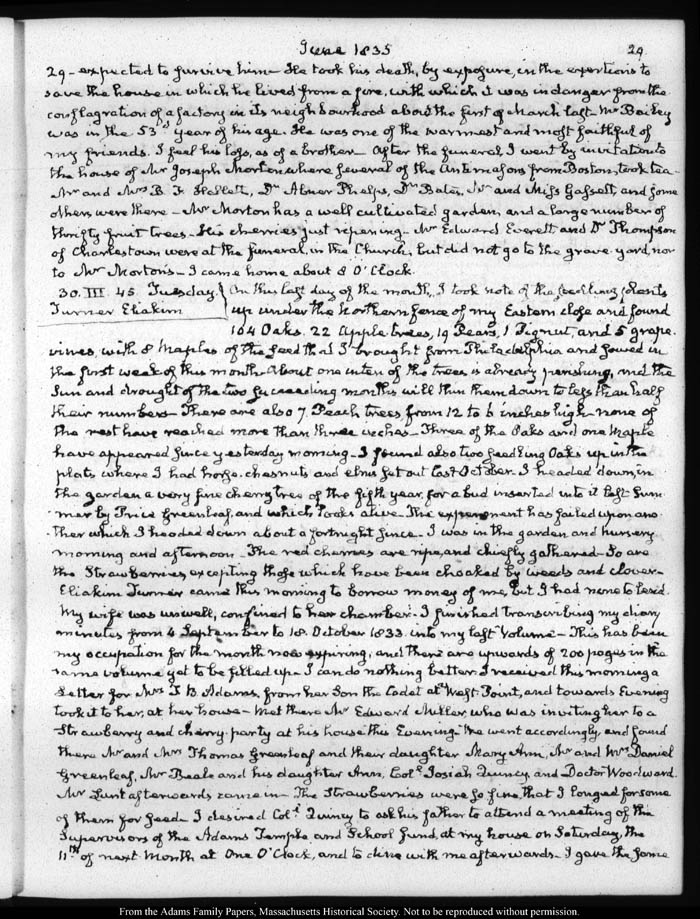 June 1835
29.
29 - expected to survive him - He took his death, by exposure, in the exertions to
save the house in which he lived from a fire, with which it was in danger from the
conflagration of a factory in its neighbourhood about the first of March last - Mr Bailey
was in the 53d year of his age. He was one of the warmest and most faithful of
my friends. I feel his loss, as of a brother - After the funeral I went by invitation to
the house of Mr Joseph Morton, where several of the Antimasons from Boston, took tea -
Mr and Mrs B. F. Hallett, Dr Abner Phelps, Dr Bates, Mr and Miss Gassett, and some
others were there - Mr Morton has a well cultivated garden, and a large number of
thrifty fruit trees - His cherries just ripening - Mr Edward Everett and Dr Thompson
of Charlestown were at the funeral, in the Church, but did not go to the grave-yard, nor
to Mr Morton's - I came home about 8 O'Clock.
30. III. 45. Tuesday.
Turner Eliakim
On this last day of the month, I took note of the seedling plants
up under the Northern fence of my Eastern close and found
104 Oaks. 22 Apple trees, 19 Pears, 1 Pignut, and 5 grape-
vines, with 8 Maples of the seed that I brought from Philadelphia and sowed in
the first week of this month. About one in ten of the trees is already perishing, and the
Sun and drought of the two succeeding months will thin them down to less than half
their numbers - There are also 7 Peach trees, from 12 to 6 inches high - none of
the rest have reached more than three inches - Three of the Oaks and one Maple
have appeared since yesterday morning - I found also two seedling Oaks up in the
plats where I had horse-chesnuts and elms set out last October. I headed down, in
the garden a very fine cherry tree of the fifth year, for a bud inserted into it last Sum-
mer by Price Greenleaf, and which looks alive - The experiment has failed upon ano-
ther which I headed down about a fortnight since - I was in the garden and nursery
morning and afternoon - The red cherries are ripe, and chiefly gathered - So are
the Strawberries, excepting those which have been choaked by weeds and clover -
Eliakim Turner came this morning to borrow money of me, but I had none to lend.
My wife was unwell, confined to her chamber - I finished transcribing my diary
minutes from 4 September to 18. October 1833. into my last Volume - This has been
my occupation for the month now expiring; and there are upwards of 200 pages in the
same volume yet to be filled up - I can do nothing better. I received this morning a
Letter for Mrs T. B. Adams, from her Son the Cadet at West-Point, and towards Evening
took it to her, at her house - Met there Mr Edward Miller, who was inviting her to a
Strawberry and cherry-party at his house this Evening - We went accordingly, and found
there Mr and Mrs Thomas Greenleaf and their daughter Mary Ann, Mr and Mrs Daniel
Greenleaf, Mr Beale and his daughter Ann, Coll. Josiah Quincy, and Doctor Woodward.
Mr Lunt afterwards came in - The Strawberries were so fine, that I longed for some
of them for seed - I desired Coll. Quincy to ask his father to attend a meeting of the
Supervisors of the Adams Temple and School fund, at my house on Saturday, the
11th of next Month at One O'Clock, and to dine with me afterwards - I gave the same
From the Adams Family Papers, Massachusetts Historical Society. Not to be reproduced without permission.